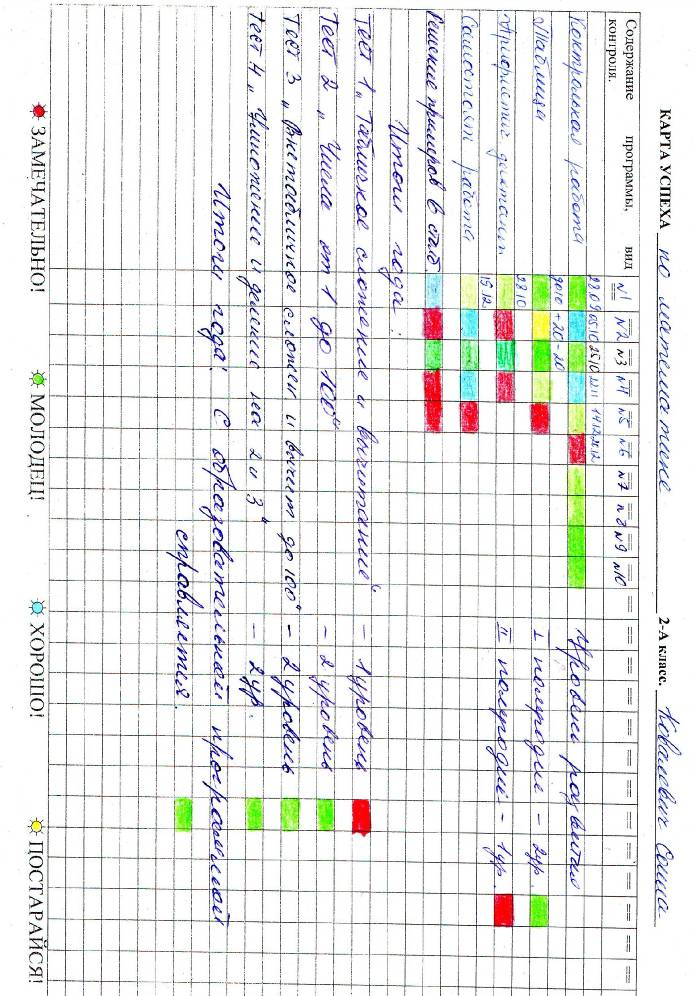 КАРТА УСПЕХА по математике 2-А класс. Ковалевич Саша
Содержание программы, вид контроля.
N1 N2 N3 N4 N5 N6 N7 N8 N9 N10
Контрольная работа 22.09 05.10 25.10 22.11 14.12 21.12
Таблица 20.10 +20 -20
Арифметич диктант 28.10
Самостоят работа 15.12
Решение примеров в столб.
Уровень развития
I полугодие – 2ур.
II полугодие – 1ур.
Итоги года:
Тест 1 „Табличное сложение и вычитание“ – 1 уровень
Тест 2 „Числа от 1 до 100“ – 2 уровень
Тест 3 „Внетабличное сложен и вычит до 100“ – 2 уровень
Тест 4 „Умножение и деление на 2 и 3“ – 2ур.
Итоги года: С образовательной программой
справляется.
ЗАМЕЧАТЕЛЬНО! МОЛОДЕЦ! ХОРОШО! ПОСТАРАЙСЯ!